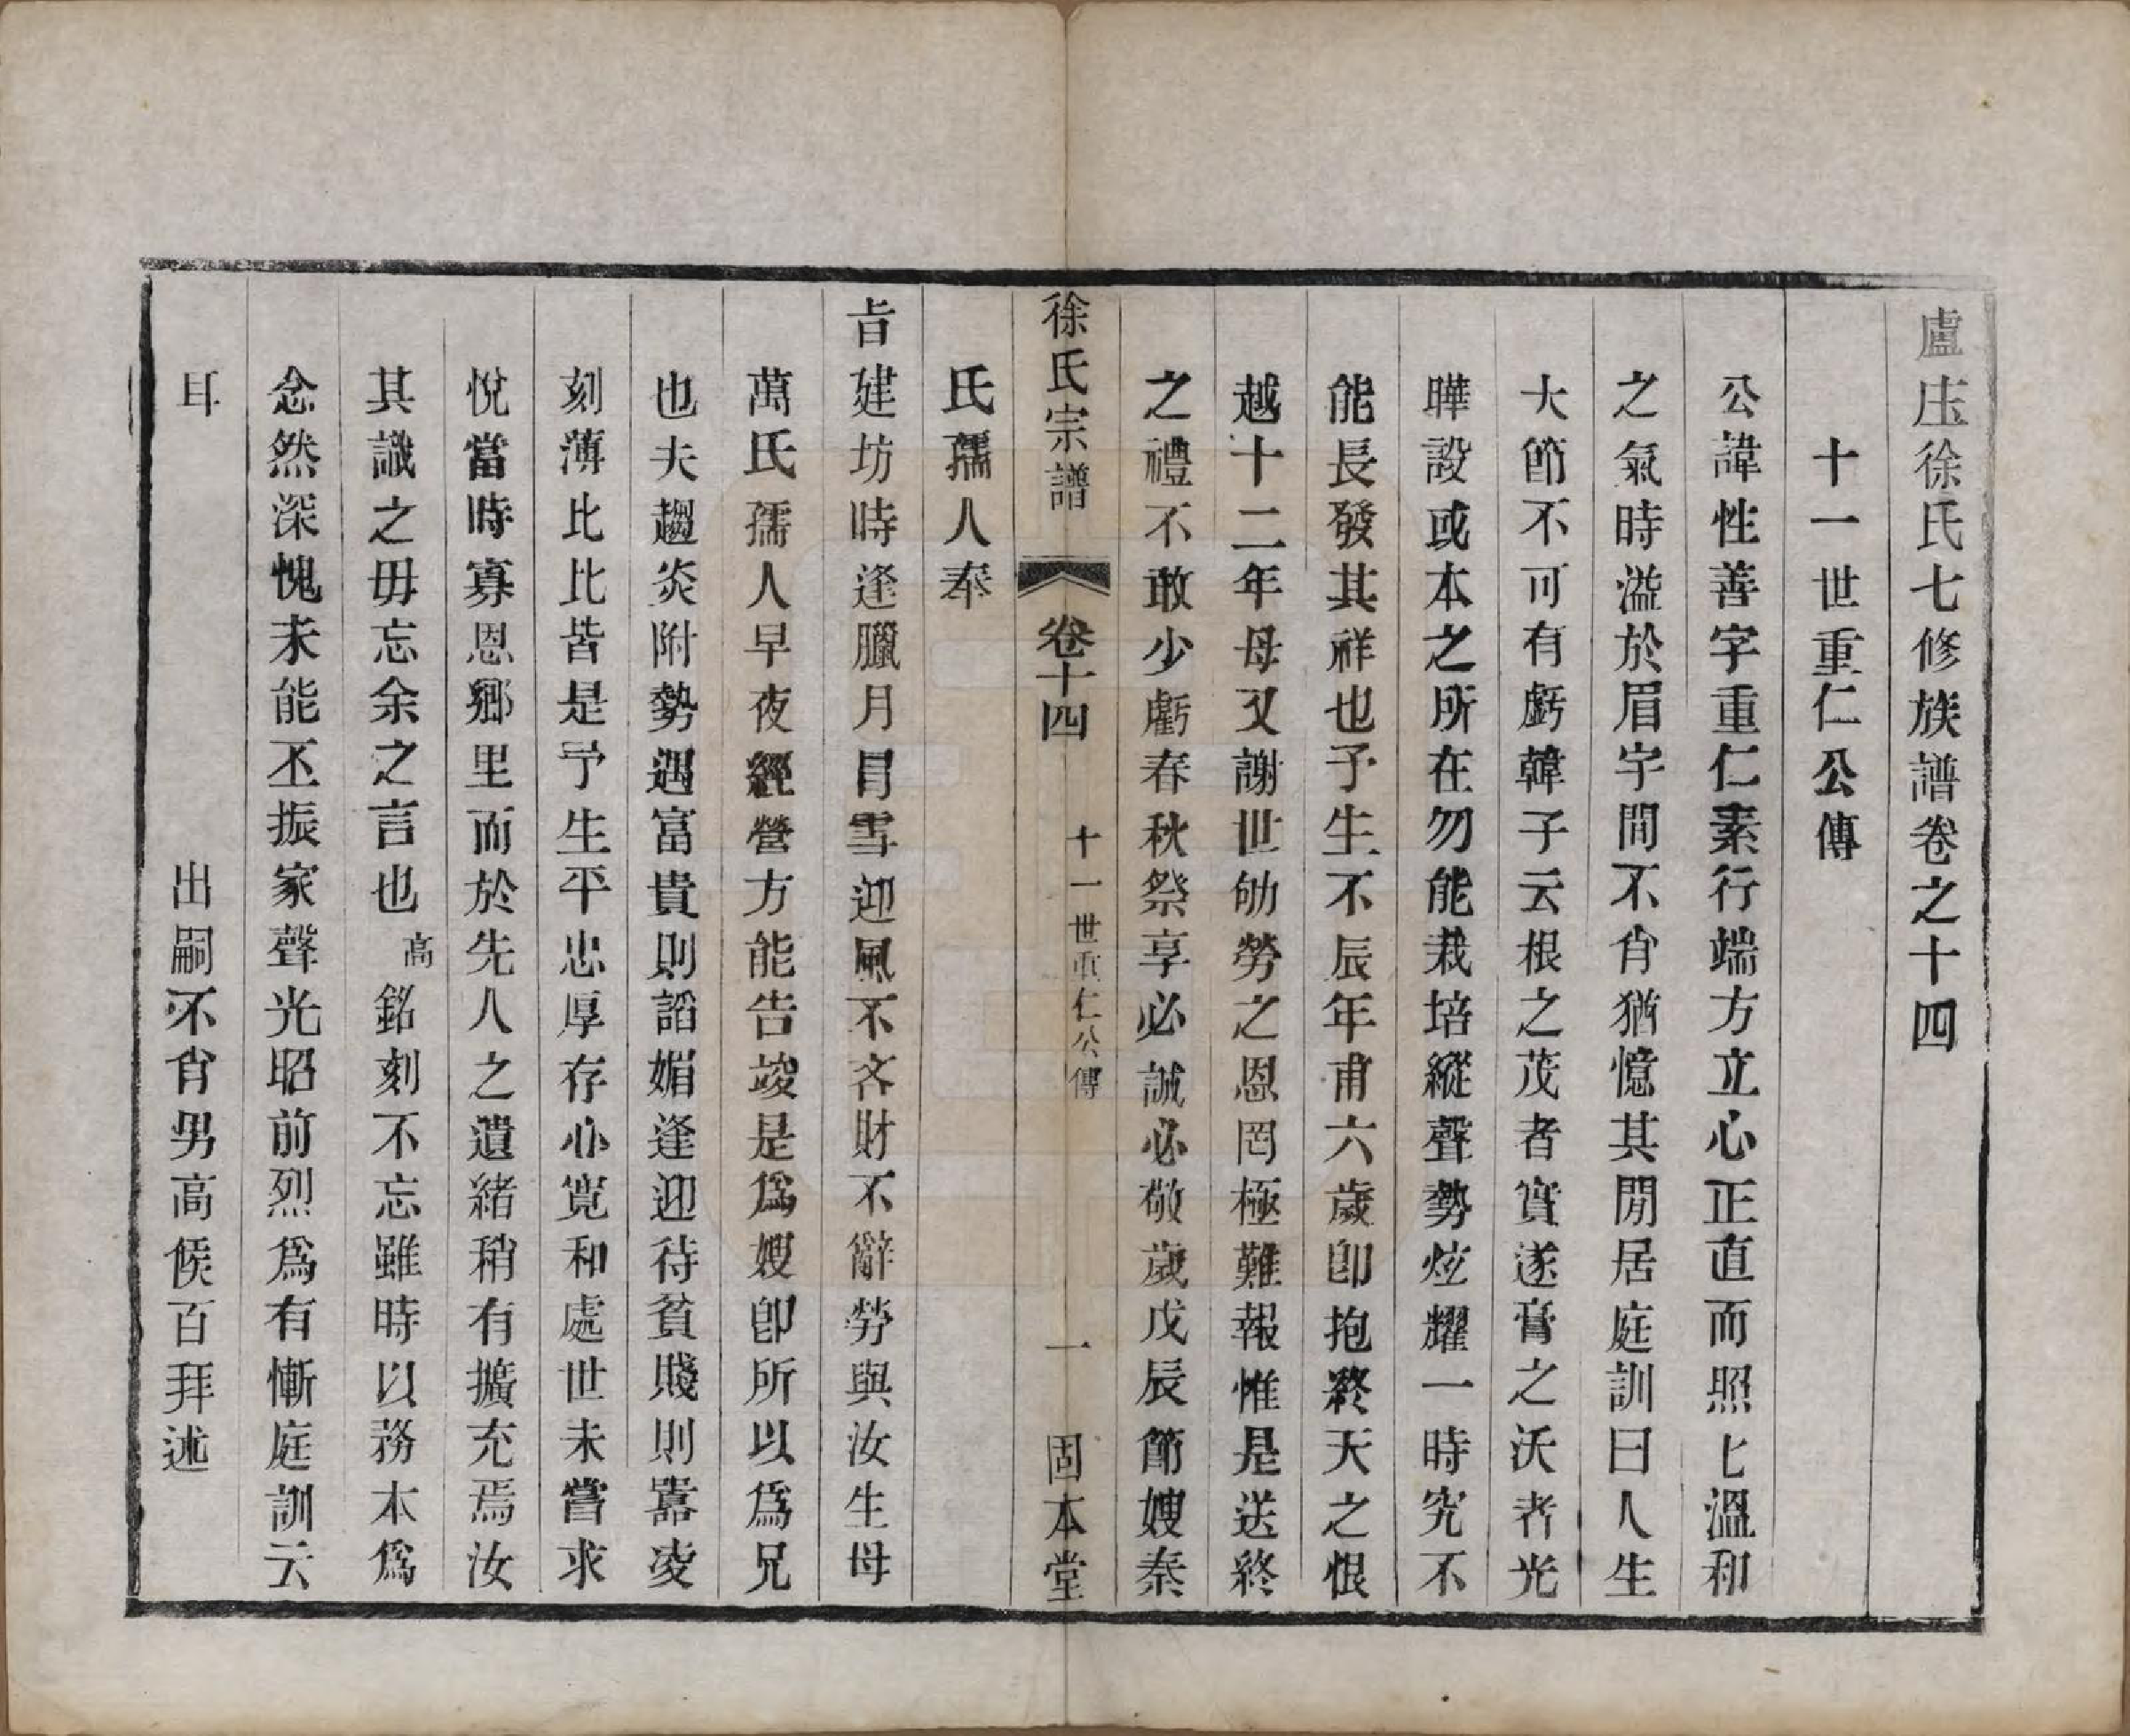 盧庄徐氏七修族譜卷之十四
十一世重仁公傳
公諱性善字重仁素行端方立心正直而照匕溫和
之氣時溢於眉宇間不肖猶憶其閒居庭訓曰人生
大節不可有虧韓子云根之茂者實遂膏之沃者光
曄設或本之所在勿能栽培縱聲勢炫耀一時究不
能長發其祥也予生不辰年甫六歲卽抱終天之恨
越十二年母又謝世劬勞之恩罔極難報惟是送終
之禮不敢少虧春秋祭享必誠必敬歲戊辰節嫂秦
氏孺人奉
徐氏宗譜 卷十四 十一世重仁公傳 一 固本堂
旨建坊時逢臘月冐雪迎風不吝財不辭勞與汝生母
萬氏孺人早夜經營方能告竣是爲嫂卽所以爲兄
也夫趨炎附勢遇富貴則謟媚逢迎待貧賤則嚣凌
刻薄比比皆是予生平忠厚存心寬和處世未嘗求
悅當時寡恩鄉里而於先人之遺緒稍有擴充焉汝
其識之毋忘余之言也高銘刻不忘雖時以務本爲
念然深愧未能丕振家聲光昭前烈爲有慚庭訓云
耳
出嗣不肖男高候百拜述